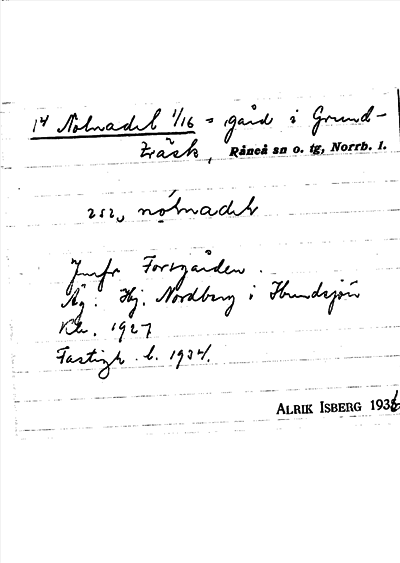 14 Nolnadel 1/16 = gård i Grund-
träsk, Råneå sn o. tg, Norrb. l.
252, nòlnadeln
Jmfr Forsgården.
Äg. Hj. Nordberg i Hundsjön
Kl. 1927
Fastigh. l. 1934.
ALRIK ISBERG 1936